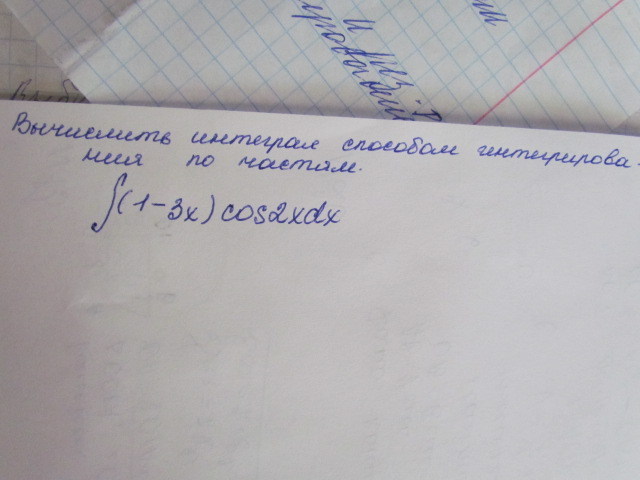 Вычислить интеграл способом интегрирова-
ния по частям.
∫(1-3x)cos2xdx